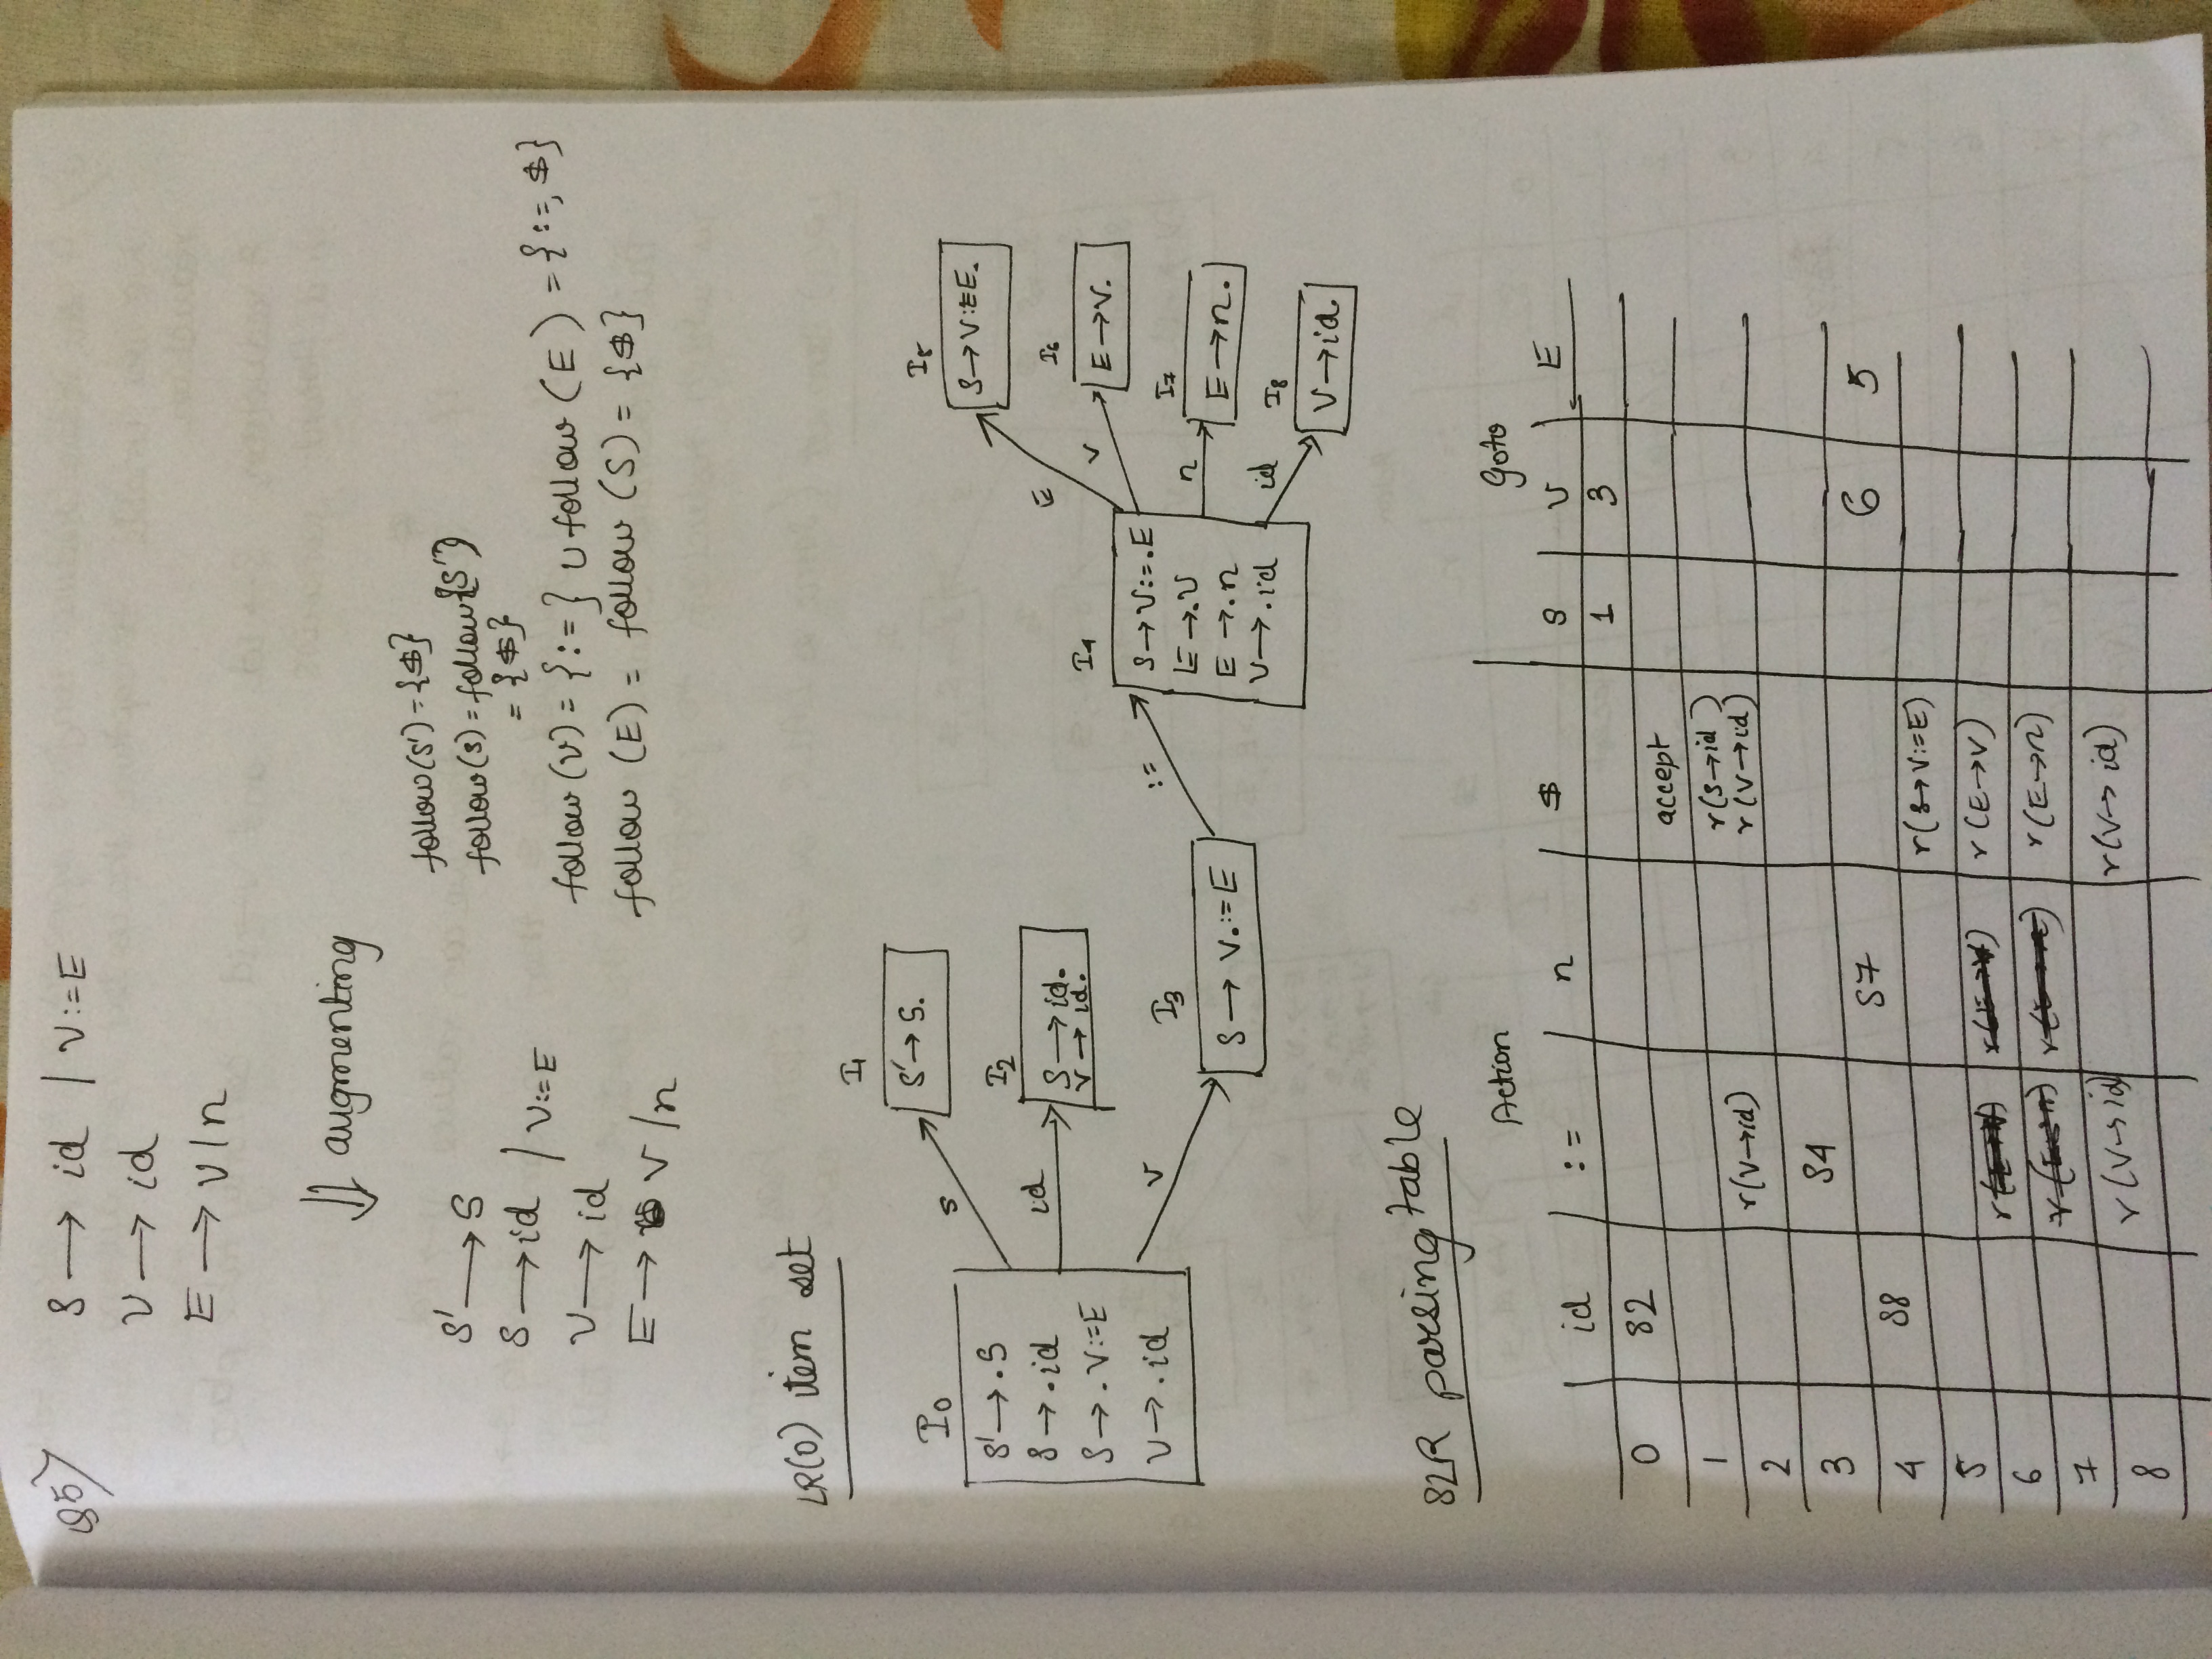 Q5)
S → id / V:=E
V → id
E → V/n
⇓ augmenting
S' → S
S → id / V:=E
V → id
E → V/n
follow(S') = {$}
follow(S) = follow{S'}
= {$}
follow(V) = {:=} ∪ follow(E) = {:=, $}
follow(E) = follow(S) = {$}
LR(0) item set
I0
S' → .S
S → .id
S → .V:=E
V → .id
S
id
V
I1
S' → S.
I2
S → id.
V → id.
I3
S → V.:=E
:=
I4
S → V:=.E
E → .V
E → .n
V → .id
E
V
n
id
I5
S → V:=E.
I6
E → V.
I7
E → n.
I8
V → id.
SLR parsing table
Action Goto
id := n $ S V E
0 S2 1 3
1 accept
2 r(V→id) r(S→id) r(V→id)
3 S4
4 S8 S7 6 5
5 r(S→V:=E)
6 r(E→V) r(E→V) r(E→V)
7 r(E→n) r(E→n) r(E→n)
8 r(V→id) r(V→id)